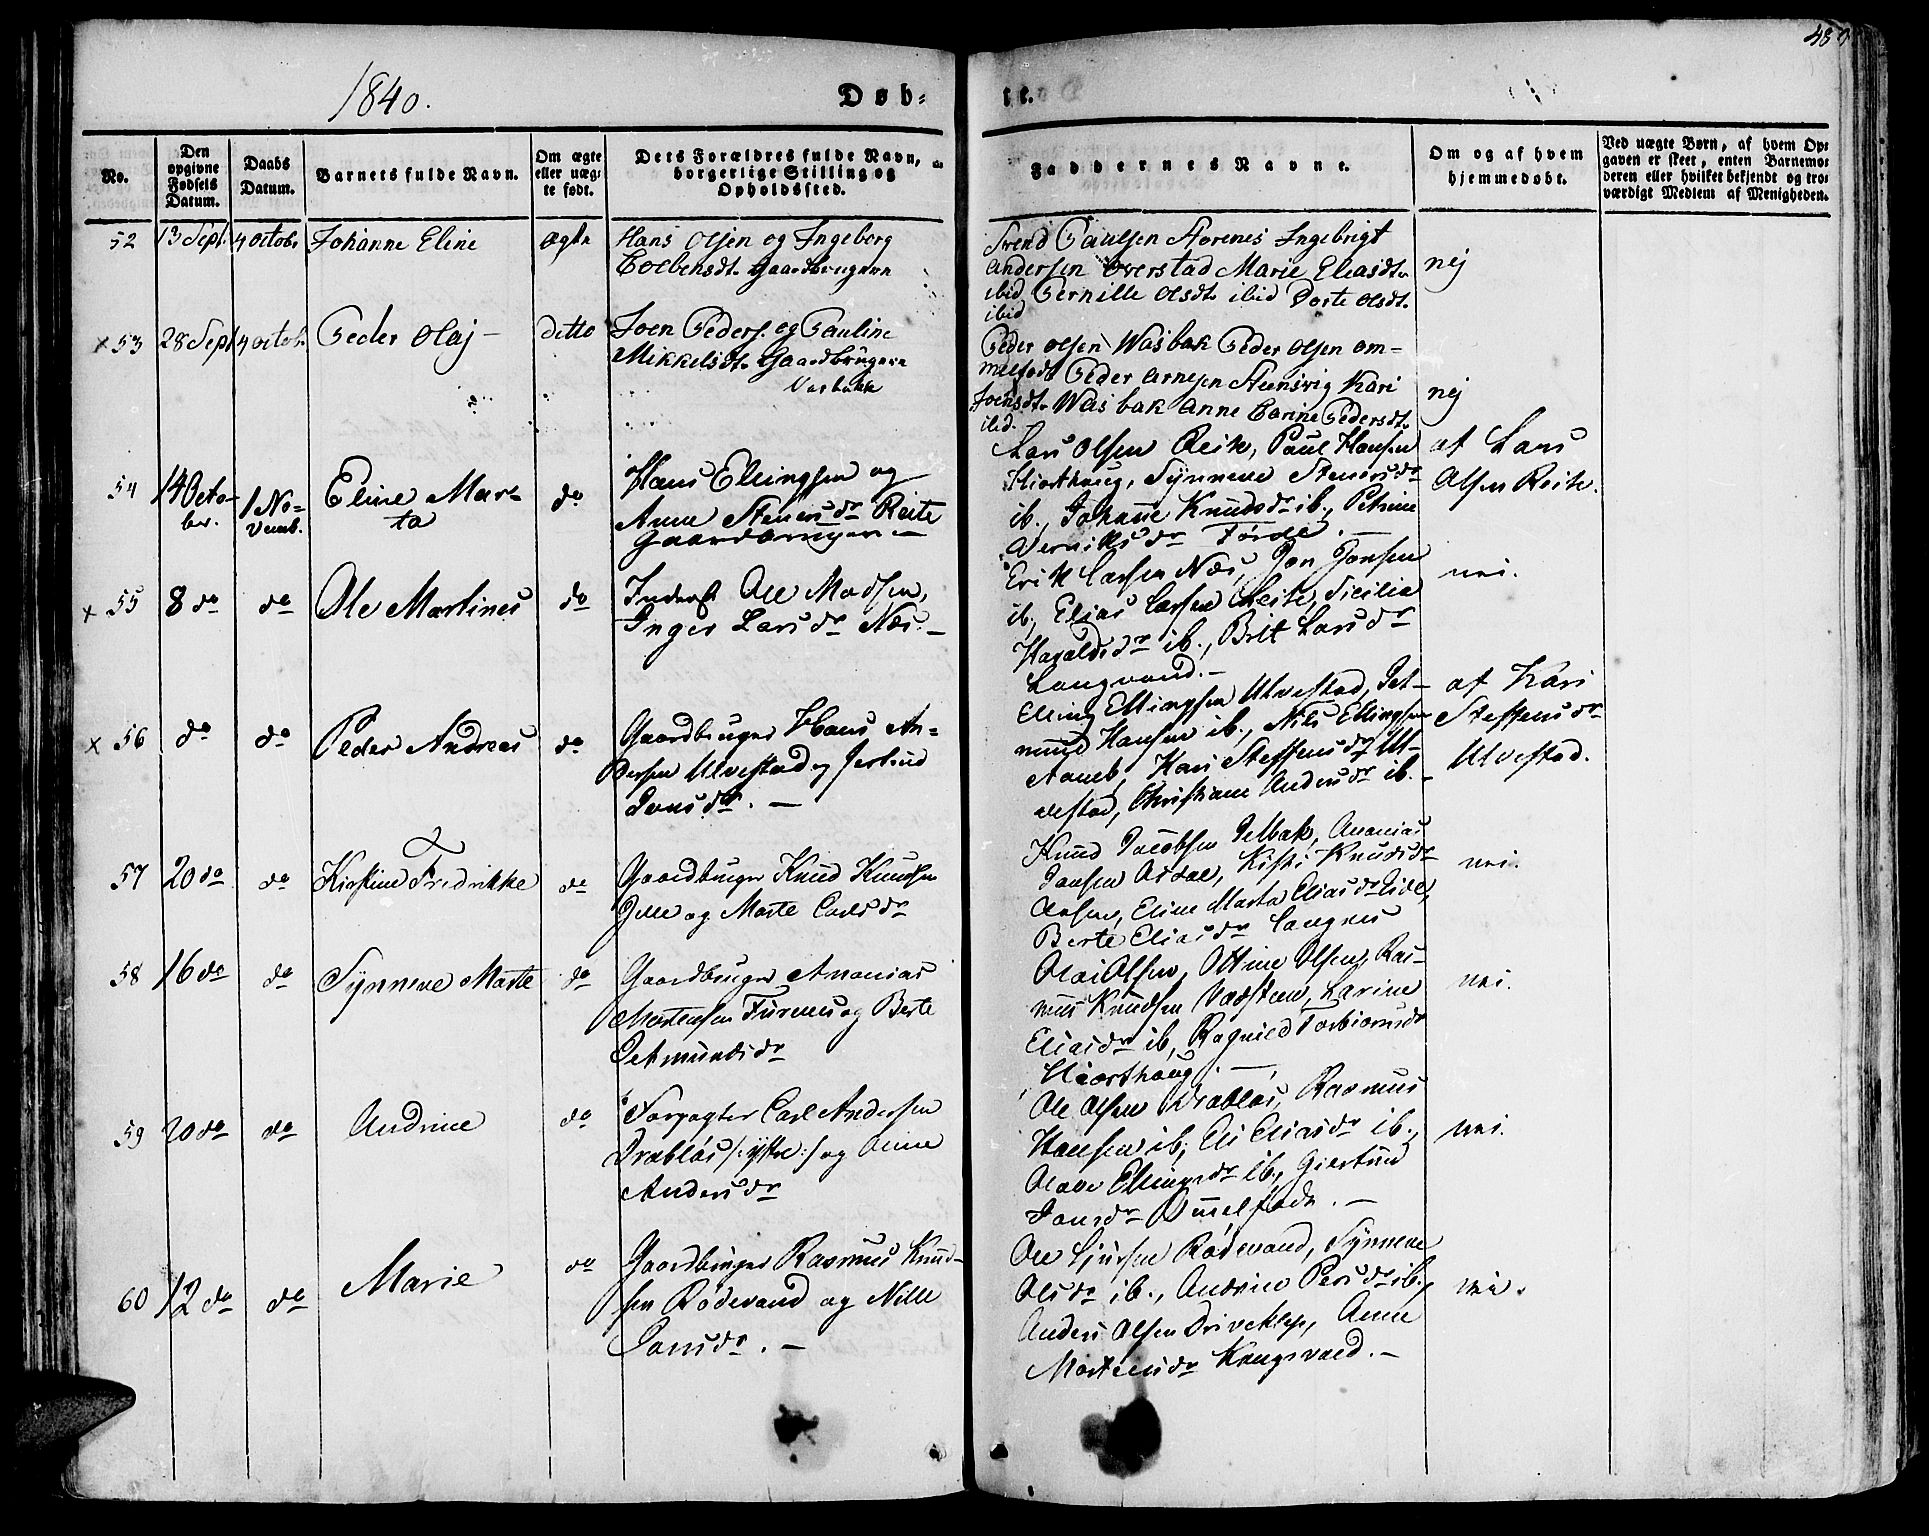 1840.
Døb-
te.
48
No.
Den opgivne Fødsels Datum.
Daabs Datum.
Barnets fulde Navn.
Om ægte eller uæg-
te født.
Dets Forældres fulde Navn,
borgerlige Stilling og
Opholdssted.
Faddernes Navne.
Om og af hvem
hjemmedøbt.
Ved uægte Børn, af hvem Op-
gaven er skeet, enten Barnemo-
deren eller hvilket bekjendt og tro-
værdigt Medlem af Menigheden.
52 13 Sept. 4 octobr Johanne Eline ægte
Hans Olsen og Ingeborg
Gaardbrugere
Svend Paulsen Ingebrigt
Andersen overstad Marie Eliasdtr
ibid Pernille Olsdtr ibid Dorte Olsdtr
ibid
nej
x 53 28 Sept 4 octob. Peder Olaj ditto
Joen Peders. og Pauline
Mikkelsdtr Gaardbrugere
Vasbakk
Peder Olsen Wasbak Peder Olsen om-
melfodt Peder Arnesen Steensvig Kari
Joensdtr Wasbak Anne Carine Pedersdtr
ibid.
nej
54 14 Octo-
ber. 1 No-
vemb. Eline Mar-
ta do
Hans Ellingsen og
Anne Steners dr Reite
Gaardbrugere
Lars Olsen Reite, Paul Hansen
Hiorthoug, Synneve Steners dr
ib., Johanne Knuds dr ib., Petrine
dr Førde.
af Lars
Olsen Reite.
x 55 8 do do Ole Martines do
Inderst Ole Madsen,
Inger Lars dr Næs.
Erik Larsen Næs, Jon Jonsen
ib., Elias Larsen Reite, Sicilia
Haralds dr ib., Brit Lars dr
Langvand.
nei.
x 56 do do Peder Andreas do
Gaardbruger Hans An-
dersen Ulvestad og Jertrud
Jons dr.
Elling Ellingsen Ulvestad, Det-
mund Hansen ib., Nils Ellingsen
Aaneb, Kari Steffens dr Ul-
vestad, Christiane Anders dr ib.
af Kari
Steffens dr
Ulvestad.
57 20 do do Kirstine Fredrikke do
Gaardbruger Knud Knudsen
og Marte Carls dr
Knud Jacobsen Ananias
Jansen Kisti Knuds dr
Eline Marta Elias dr
Berte Elias dr Langnes
nei.
58 16 do do Synneve Marte do
Gaardbruger Ananias
Mortensen Furenes og Berte
Detmunds dr
Olai Olsen, Ottine Olsen, Ras-
mus Knudsen Vadsteen, Karine
Elias dr ib, Ragnild Torbiørns dr
Hiorthoug.
nei.
59 20 do do Andrine do
Forpagter Carl Andersen
Drabløs /:ytre:/ og Anne
Anders dr
Ole Olsen Drabløs, Rasmus
Hansen ib., Eli Elias dr ib.,
Olave Ellings dr ib., Giertrud
Jons dr Ommelfodt.
nei.
60 12 do do Marie do
Gaardbruger Rasmus Knud-
sen Rødevand og Nille
Lars dr.
Ole Sjursen Rødevand, Synneve
Ols dr ib., Andrine Pers dr ib.,
Anders Olsen Driveklep, Anne
Mortens dr Kongsvold.
nei.